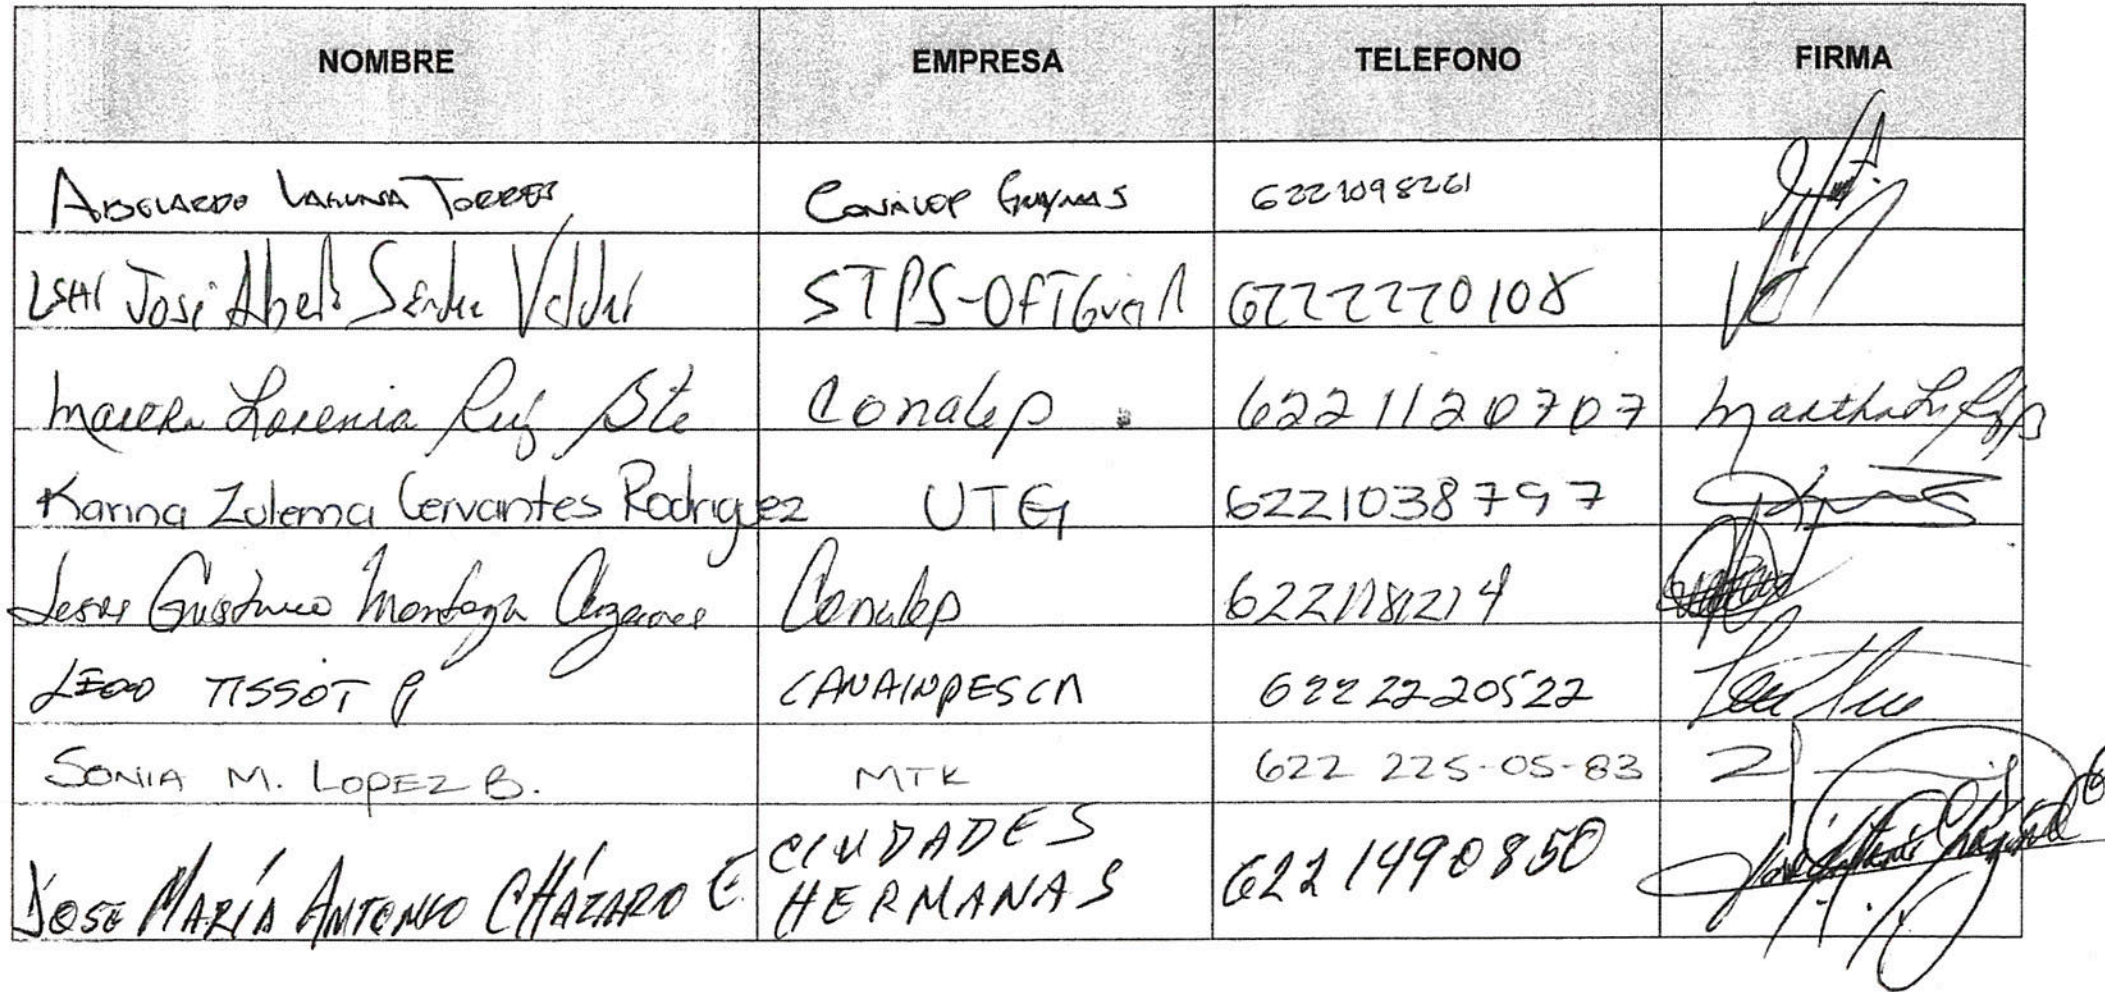 NOMBRE EMPRESA TELEFONO FIRMA
ABELARDO LAGUNA TORRES CONALEP GUAYMAS 6221098261
LSHI José Abel STPS-OFT 6222270108
Lorenia Conalep 6221120707 Martha
Karina Zulema Cervantes Rodriguez UTG 6221038797
Jesus Gustavo Montoya Conalep 6221181214
TISSOT CANAINPESCA 6222220522
SONIA M. LOPEZ B. MTK 622 225-05-83
JOSE MARÍA ANTONIO CHÁZARO E. CIUDADES
HERMANAS 6221490850